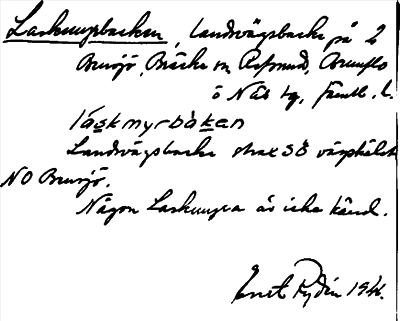 Laskmyrbacken, landsvägsbacke på 2
Bensjö, Bräcke sn, Refsund, Brunflo
o Näs tg, Jämtl. l.
låskmyrbàken
Landsvägsbacke strax SÖ vägskälet
NO Bensjö.
Någon Laskmyra är icke känd.
Ernst Rydin 1941.